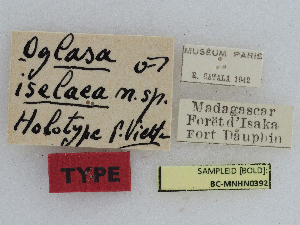 Oglasa ♂
iselaea n. sp.
Holotype P. Viette
MUSEUM PARIS
R. CATALA 1942
Madagascar
Forêt d'Isaka
Fort Dauphin
TYPE
SAMPLEID [BOLD]:
BC-MNHN0392